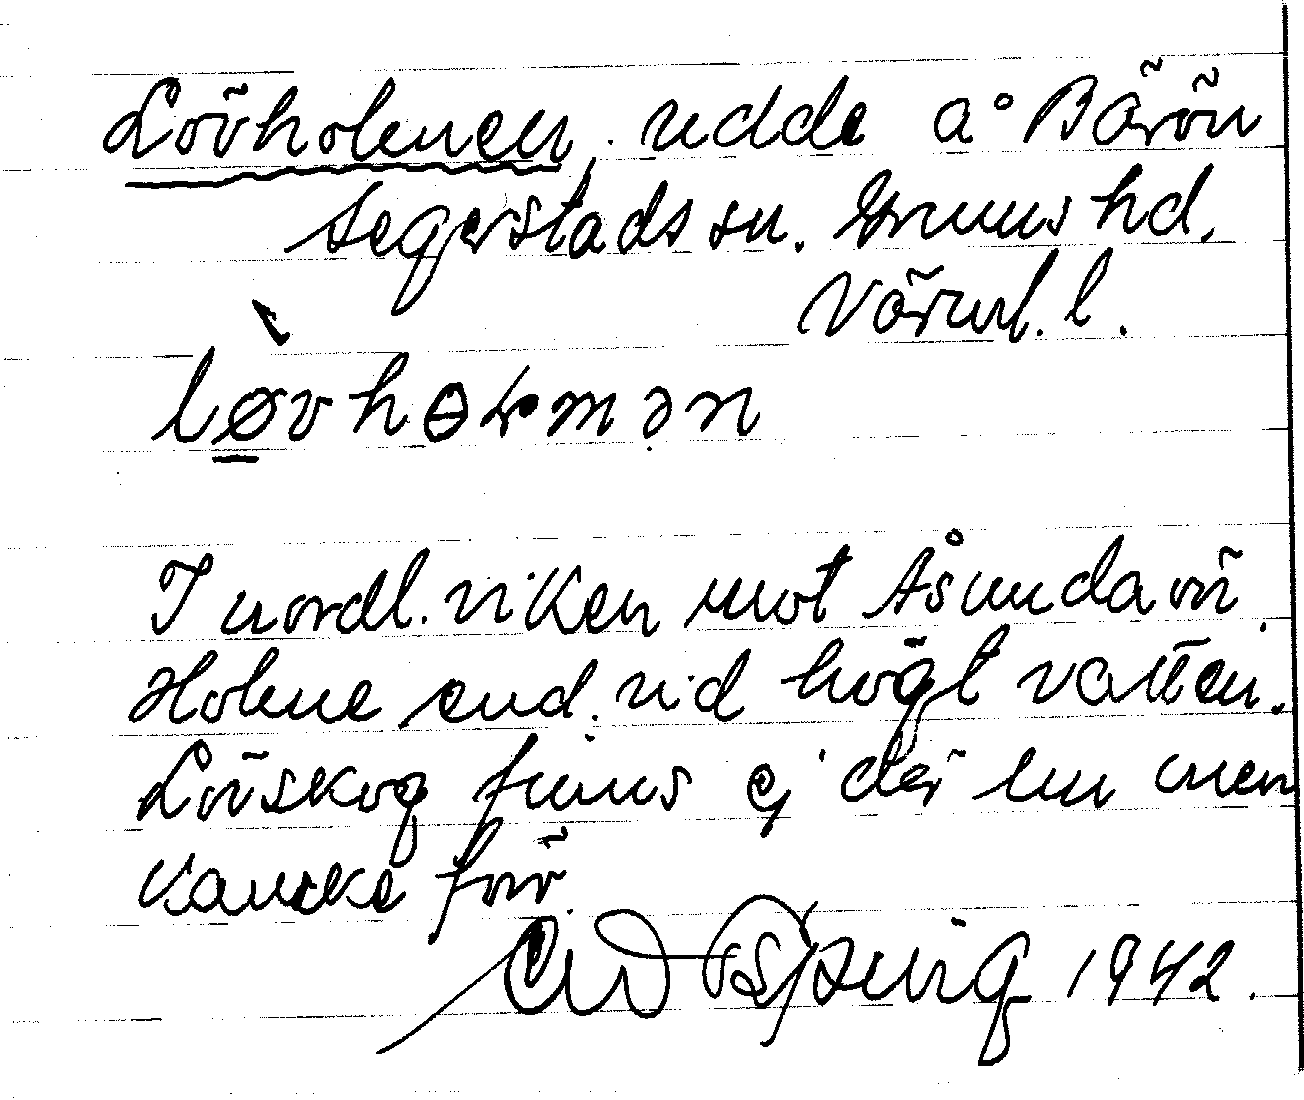 Lövholmen, udde å Bärön
Segerstads sn. Grums hd.
Värml. l.
I nordl. viken mot Åsundaön.
Holme end. vid högt vatten.
Lövskog finns ej där nu men
kanske förr.
1942.